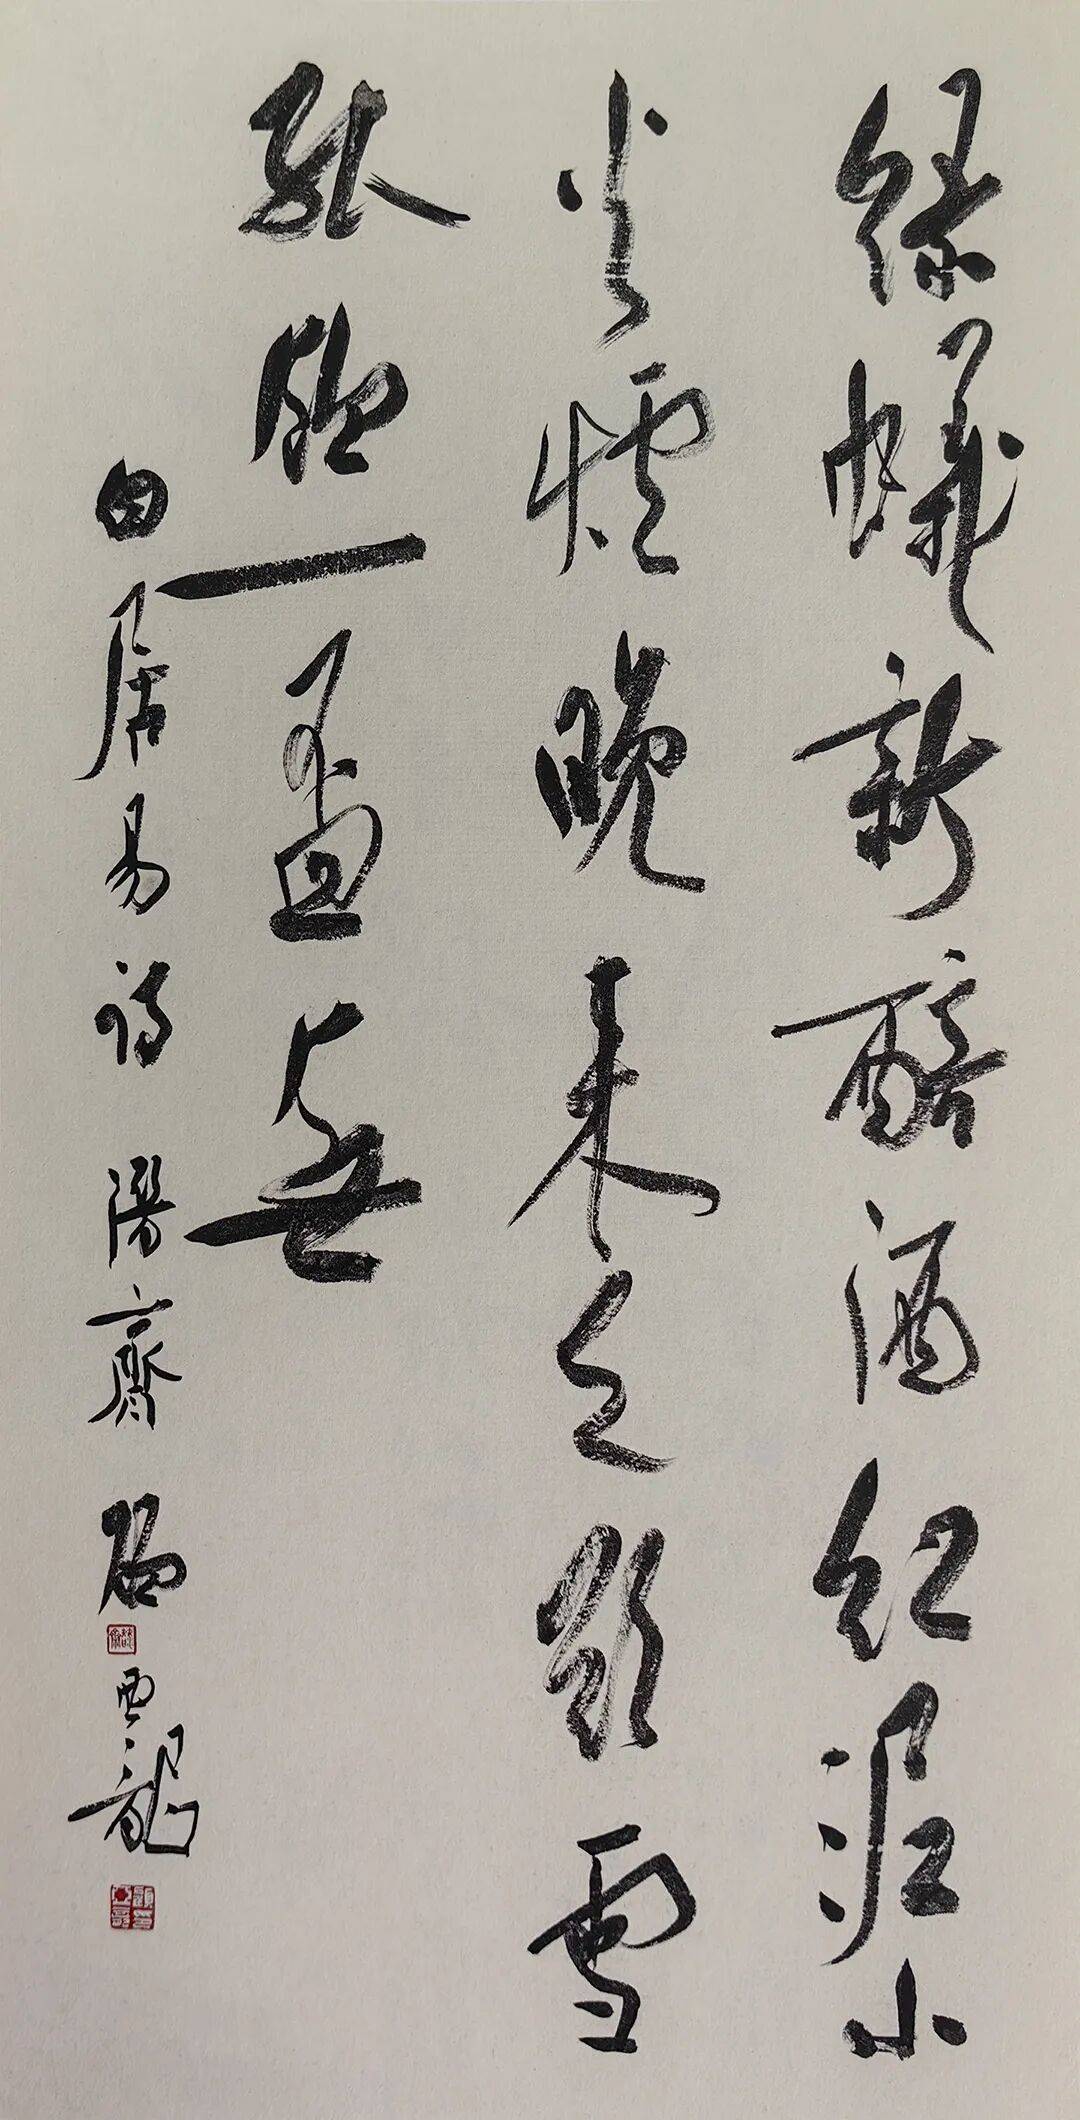 綠蟻新醅酒紅泥小
火爐晚来天欲雪
能飲一盃無
白居易詩 齋 龍